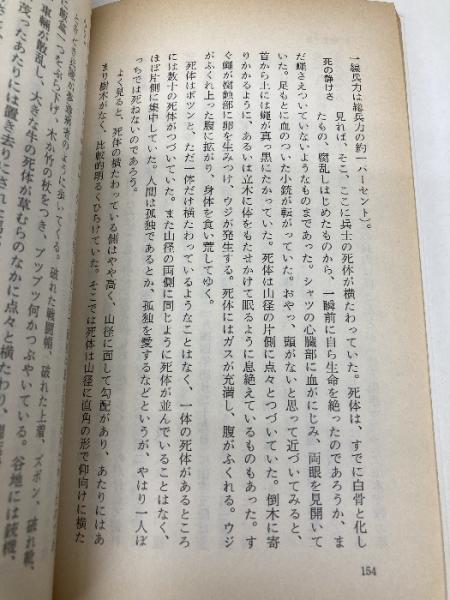 一線兵力は総兵力の約一パーセント)。
死の静けさ
見れば、そこ、ここに兵士の死体が横たわっていた。死体は、すでに白骨と化し
たもの、腐乱しはじめたものから、一瞬前に自ら生命を絶ったのであろうか、ま
だ蠅さえついていないようなものまであった。シャツの心臓部に血がにじみ、両眼を見開いて
いた。足もとに血のついた小銃が転がっていた。おやっ、頭がないと思って近づいてみると、
首から上には蠅が真っ黒にたかっていた。死体は山径の片側に点々とつづいていた。倒木に寄
りかかるように、あるいは立木に体をもたせかけて眠るように息絶えているものもあった。す
ぐ蠅が腐蝕部に卵を生みつけ、ウジが発生する。死体にはガスが充満し、腹がふくれる。ウジ
がふくれ上った腹に拡がり、身体を食い荒してゆく。
死体はポツンと、ただ一体だけ横たわっているようなことはなく、一体の死体があるところ
には数十の死体がつづいていた。また山径の両側に同じように死体が並んでいることはなく、
ほぼ片側に集中していた。人間は孤独であるとか、孤独を愛するなどというが、やはり一人ぼ
っちでは死ねないのであろう。
よく見ると、死体の横たわっている側はやや高く、山径に面して勾配があり、あたりにはあ
まり樹木がなく、比較的明るくひらけていた。そこでは死体は山径に直角の形で仰向けに横た
154
のように歩いている。破れた戦闘帽、破れた上着、ズボン、破れ靴、
に飯盒一つをぶらさげ、木か竹の杖をつき、ブツブツ何かつぶやいている。谷地には銃機、
車輛が散乱し、大きな牛の死体が草むらのなかに点々と横たわり、
茂ったあたりには置き去りにされた